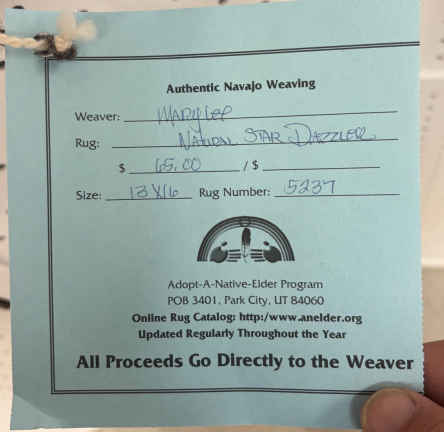 Authentic Navajo Weaving
Weaver: MARY LEE
Rug: NATURAL STAR DAZZLER
$ 65.00 / $
Size: 13 X 16 Rug Number: 5237
Adopt-A-Native-Elder Program
POB 3401, Park City, UT 84060
Online Rug Catalog: http:/www.anelder.org
Updated Regularly Throughout the Year
All Proceeds Go Directly to the Weaver